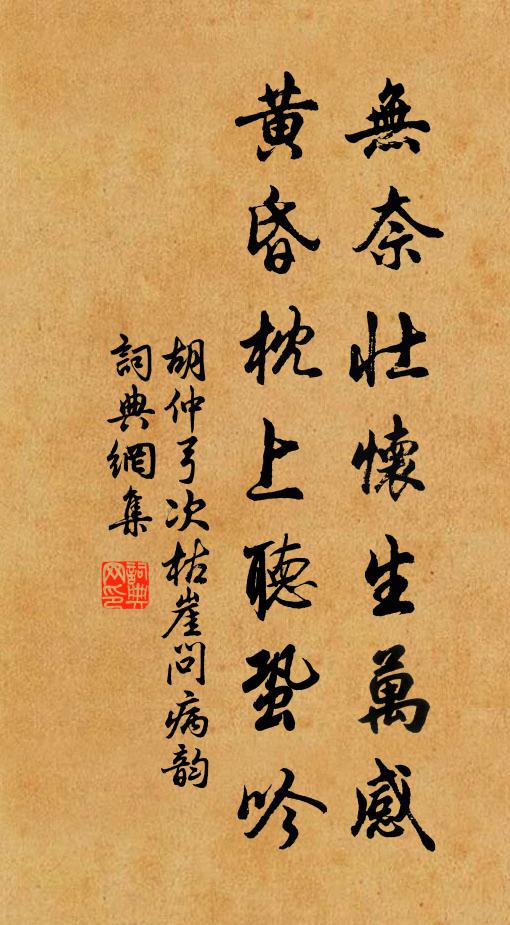 無奈壯懷生萬感
黃昏枕上聽蛩吟
胡仲弓次枯崖問病韵
詞典網集
詞典网印